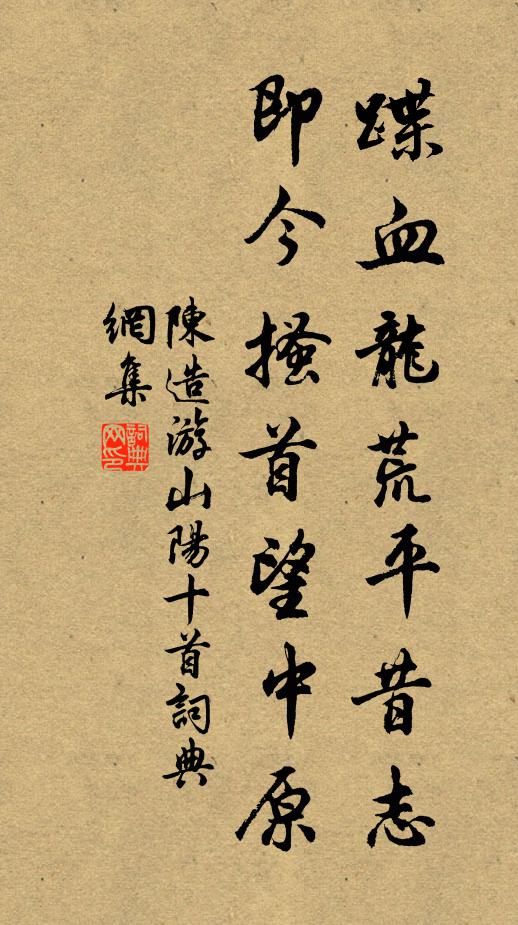 蹀血龍荒平昔志
即今搔首望中原
陳造游山陽十首詞典
網集
詞典網印